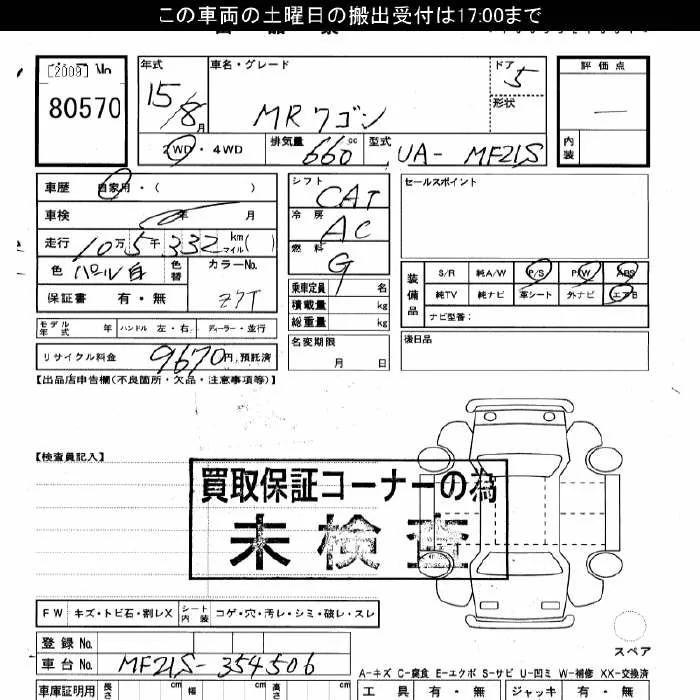 この車両の土曜日の搬出受付は17:00まで
[2009] No
80570
年式 15/8月 車名・グレード MRワゴン ドア 5 形状
評価点 —
内装
2WD・4WD 排気量 660 cc 型式 UA- MF21S
車歴 自家用・( )
車検 年 月
走行 10万5千332 km マイル( )
色 パール白 色替 カラーNo. Z7T
保証書 有・無
モデル年式 年 ハンドル 左・右 ディーラー・並行
リサイクル料金 9670円,預託済
シフト CAT
冷房 AC
燃料 G
乗車定員 名
積載量 kg
総重量 kg
名変期限
月 日
セールスポイント
装備品 S/R 純A/W P/S P/W ABS
純TV 純ナビ 革シート 外ナビ エアB
ナビ型番:
後日品
【出品店申告欄(不良箇所・欠品・注意事項等)】
【検査員記入】
買取保証コーナーの為
未検査
FW キズ・トビ石・割レX シート内装 コゲ・穴・汚レ・シミ・破レ・スレ
スペア
登録No.
車台No. MF21S-354506
A-キズ C-腐食 E-エクボ S-サビ U-凹ミ W-補修 XX-交換済
車庫証明用 長さ cm 幅 cm 高さ cm
工具 有・無 ジャッキ 有・無